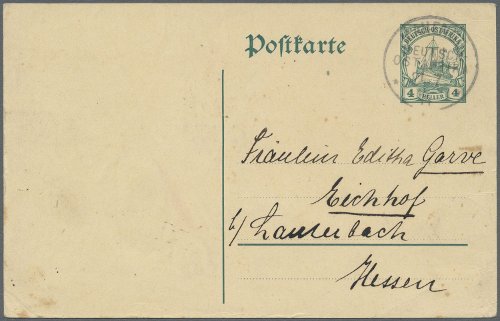 DEUTSCH-OSTAFRIKA
Postkarte
4 HELLER 4
Fräulein Editha Garve
Eichhof
b/ Lauterbach
Hessen